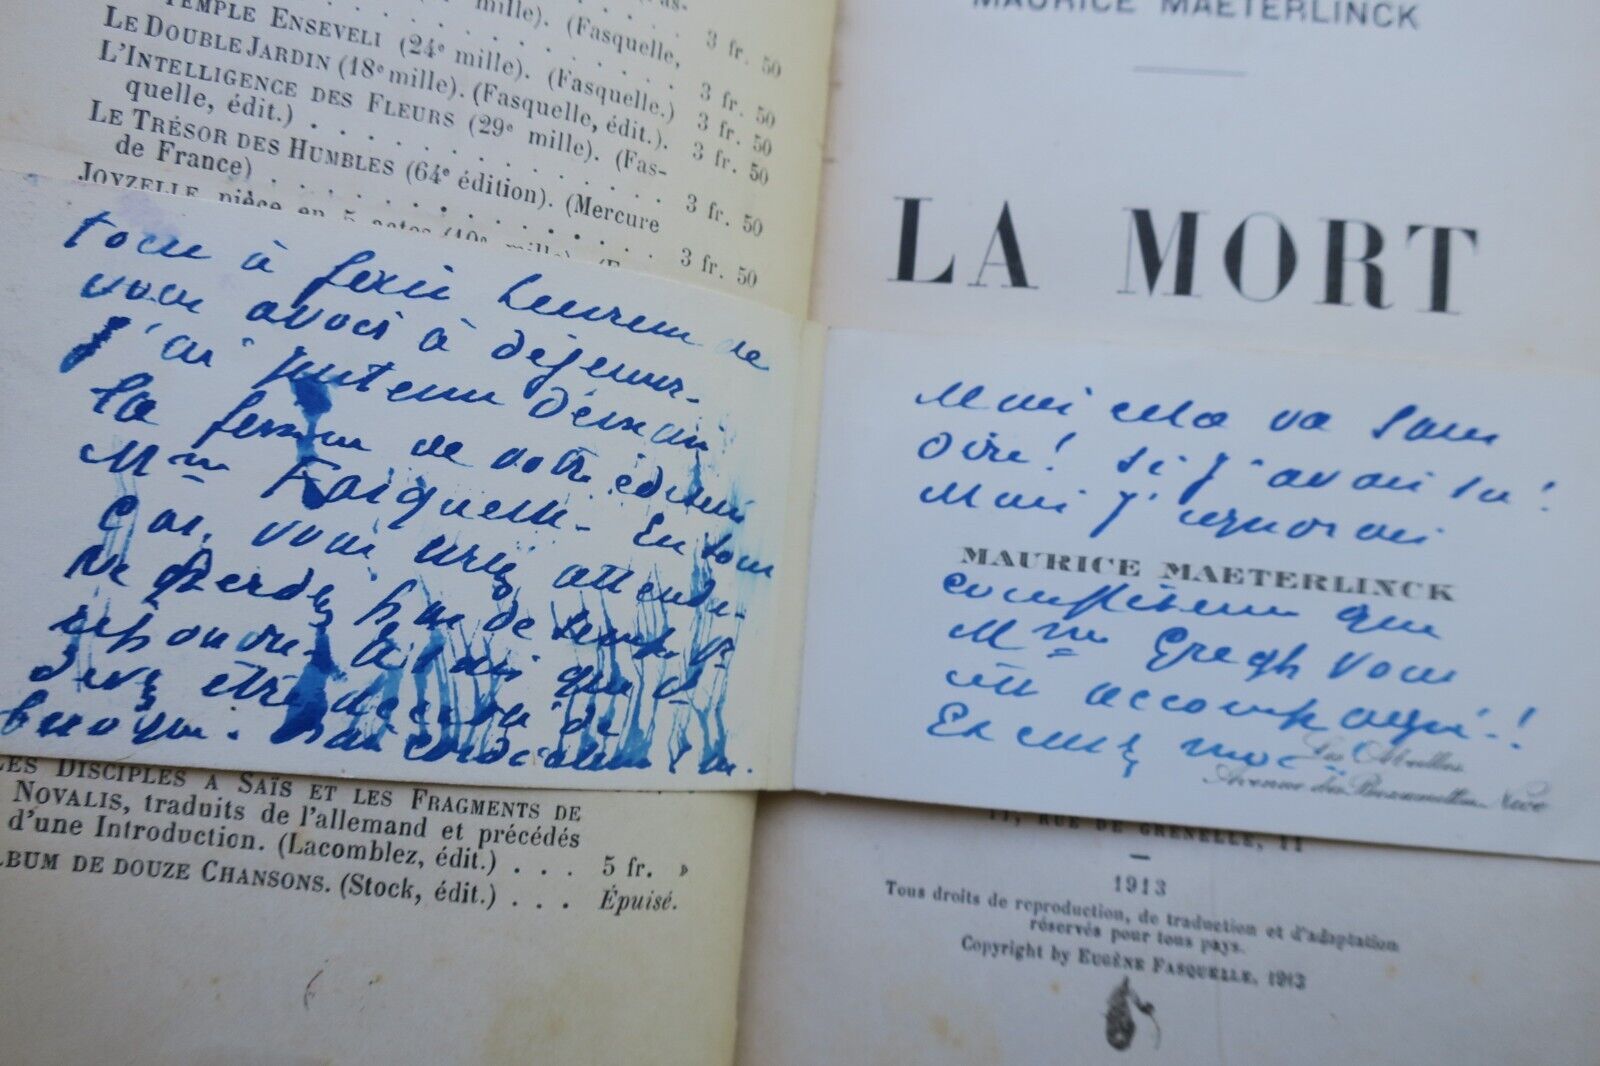 TEMPLE ENSEVELI (24e mille). (Fasquelle,
3 fr. 50
LE DOUBLE JARDIN (18e mille). (Fasquelle.)
3 fr. 50
L'INTELLIGENCE DES FLEURS (29e mille). (Fas-
quelle, édit.) . . . . . . . . . . 3 fr. 50
LE TRÉSOR DES HUMBLES (64e édition). (Mercure
de France) . . . . . . . . . . 3 fr. 50
JOYZELLE, pièce en 5 actes (10e mille). 3 fr. 50
heureux de
vous avoir à déjeuner.
J'ai
la femme de votre
Mme Fasquelle. En tout
cas, vous serez attendu.
Ne perdez pas de temps
devez être
cordialement
LES DISCIPLES A SAÏS ET LES FRAGMENTS DE
NOVALIS, traduits de l'allemand et précédés
d'une Introduction. (Lacomblez, édit.) . . . 5 fr. »
ALBUM DE DOUZE CHANSONS. (Stock, édit.) . . . Épuisé.
MAURICE MAETERLINCK
LA MORT
Mais cela va sans
dire! Si j'avais su!
Mais j'ignorais
MAURICE MAETERLINCK
complètement que
Mme Gregh vous
eût accompagné!
Excusez moi
Les Abeilles
Avenue des Baumettes. Nice
11, RUE DE GRENELLE, 11
1913
Tous droits de reproduction, de traduction et d'adaptation
réservés pour tous pays.
Copyright by EUGÈNE FASQUELLE, 1913